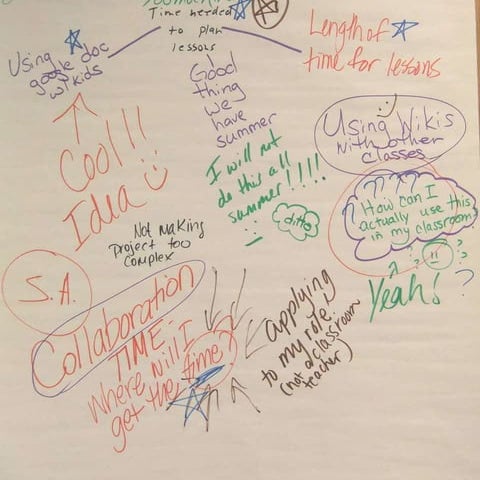 Time needed
to plan
lessons
Length of
time for lessons
Using
google doc
w/ kids
Good
thing
we
have
summer
Cool!!
Idea
I will not
do this all
summer!!!!
ditto
Using Wikis
with other
classes
????
?
How can I
actually use this
in my classroom?
Yeah!
???
?
Not making
project too
complex
S.A.
Collaboration
TIME
Where will I
get the time?
applying
to my role
(not a classroom
teacher)